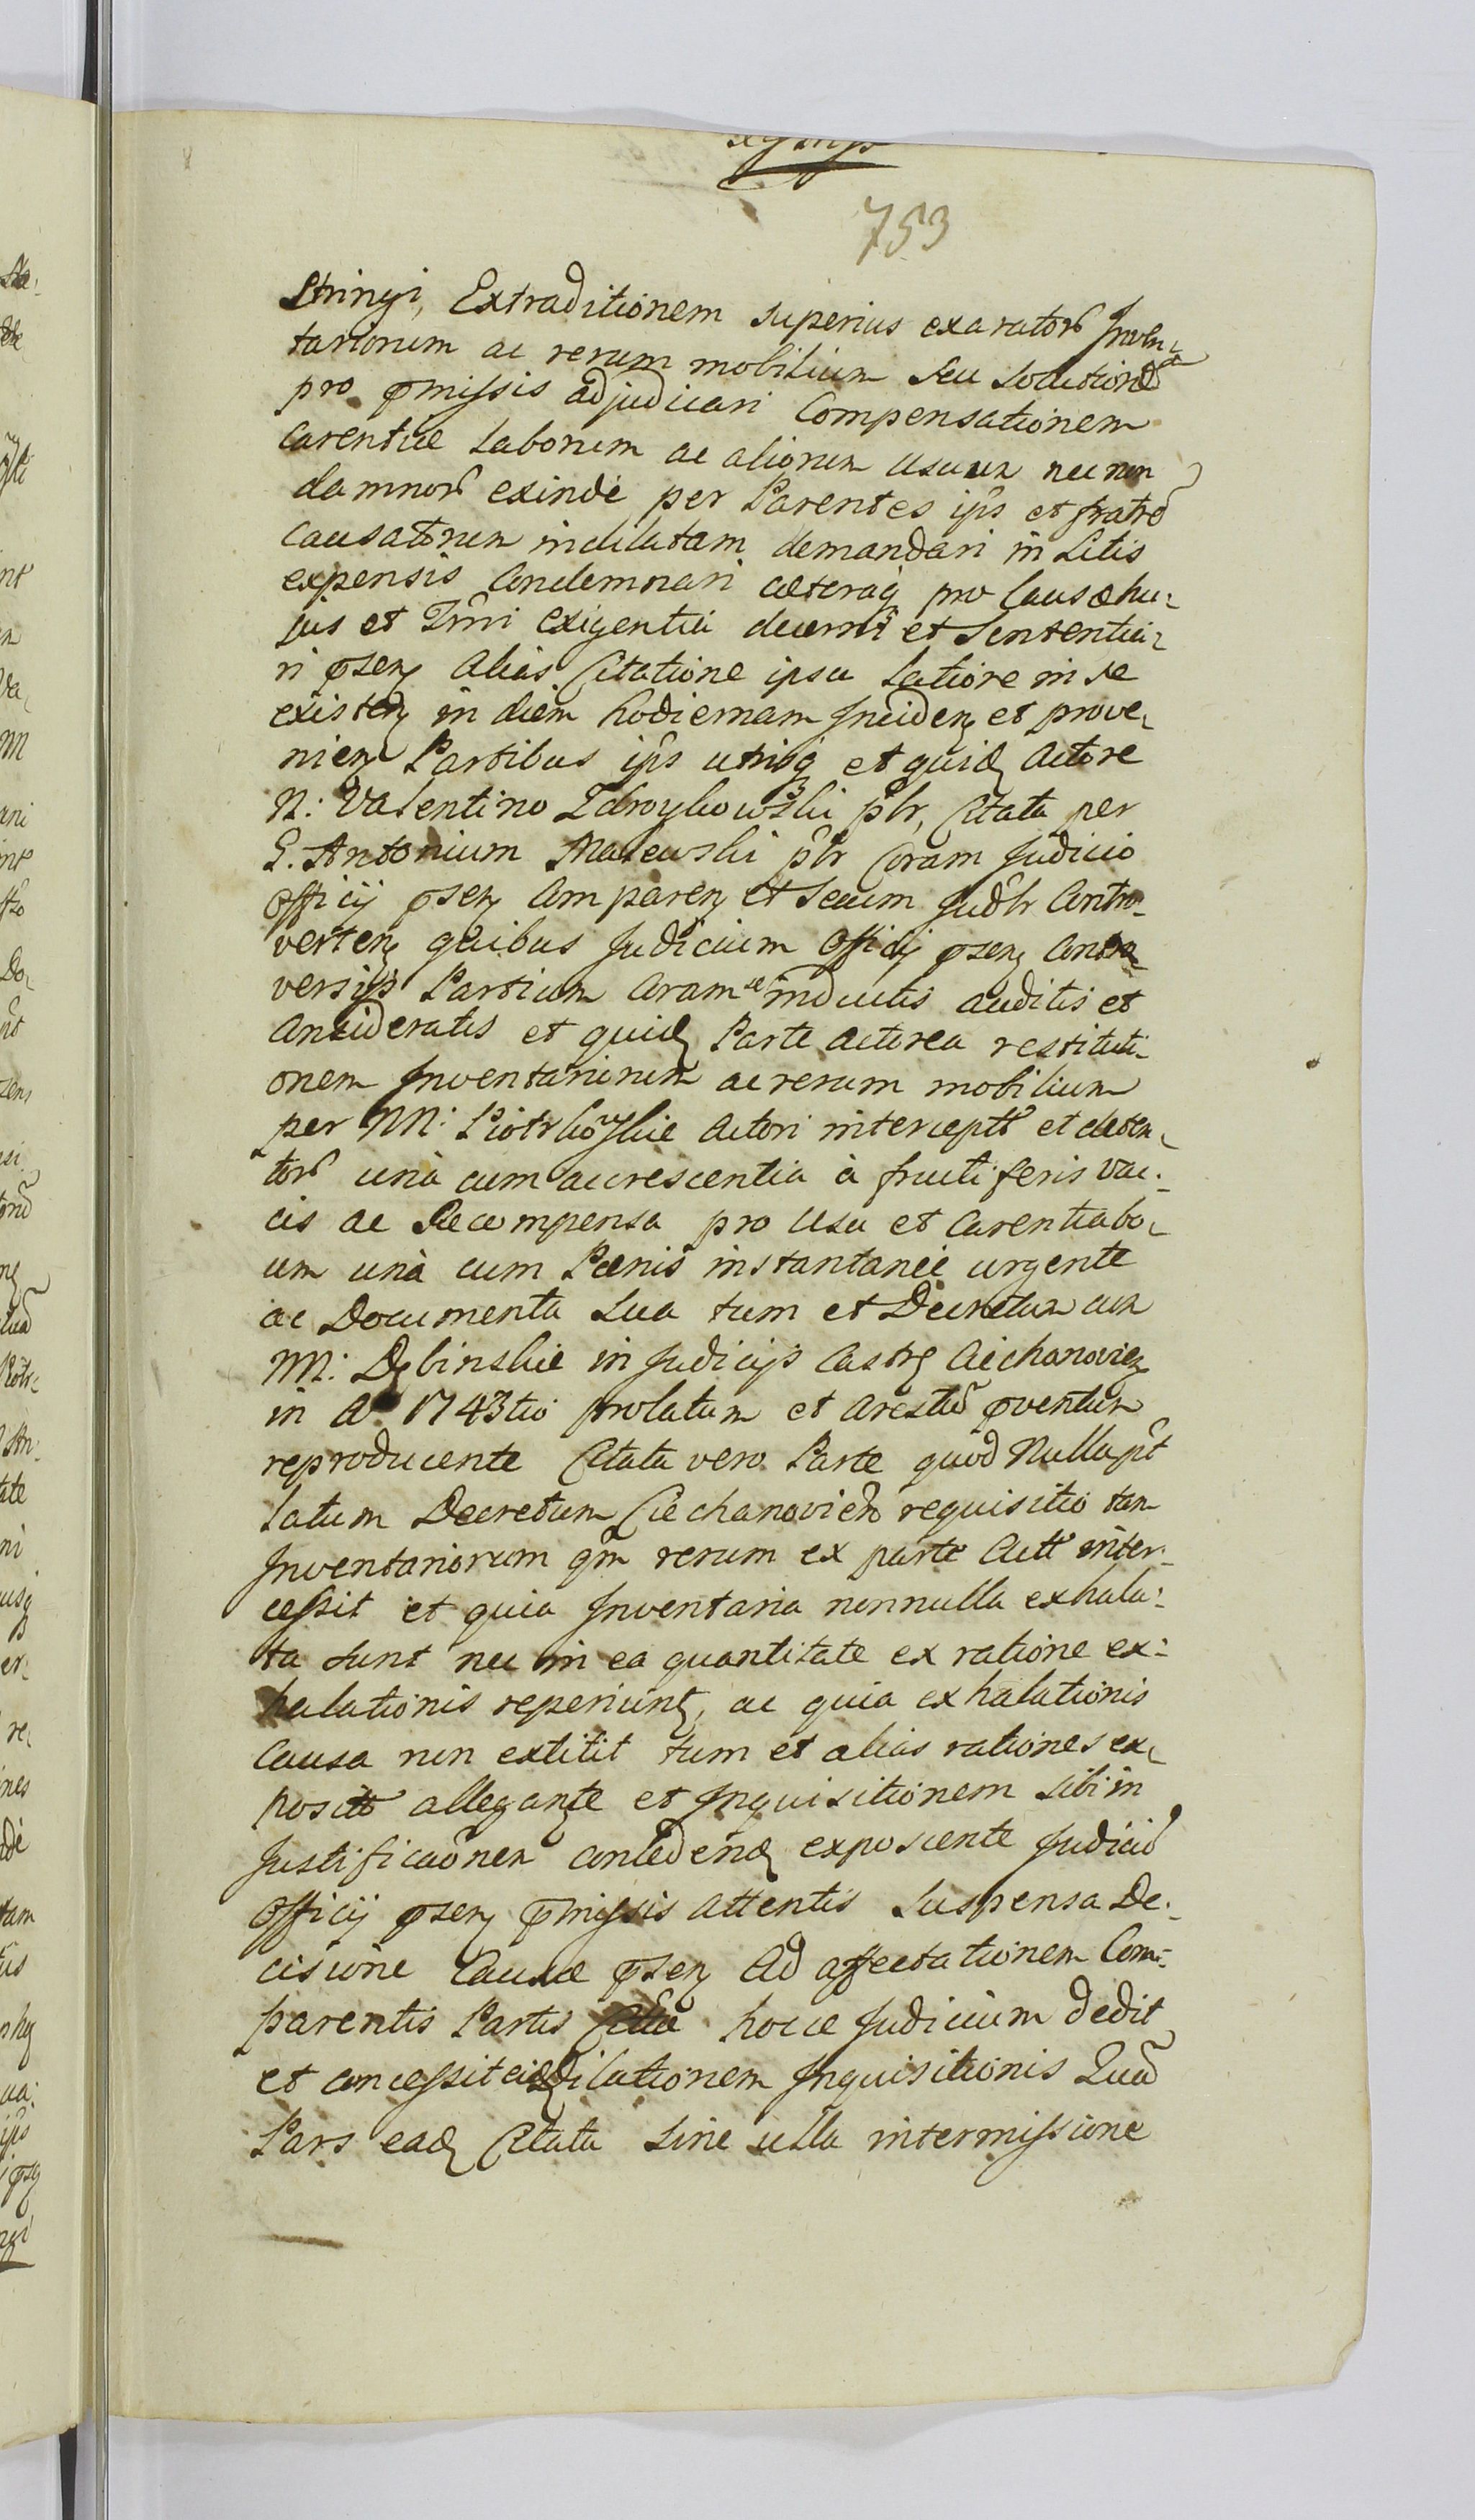 753
Stringi, Extraditionem superius exarator Inven-
tariorum ac rerum mobilium seu solution
pro pmissis adjudicari Compensationem
carentiæ Laborum ac aliorum usuum nec non
damnor exinde per Parentes ips et fratre
causatorum indilatam demandari in Litis
expensis Condemnari cæteraq pro Causæ hu-
jus et Tmi exigentia decerni et Sententia-
ri psen alias Citatione ipsa Latiore in se
existen in diem hodiernam Inciden et prove-
nien Partibus ips utrisq et quid Actore
N: Valentino Zdroykowski plr, Citata per
G. Antonium Malewski plr Coram Judicio
Officij psen Comparen et Secum Judlr Contro-
verten quibus Judicium Officij psen Contro-
versijs Partium Coram se inductis auditis et
Consideratis et quid Parte Actorea restituti-
onem Inventariorum ac rerum mobilium
per MM: Piotrkowskie Actori intercept et deten-
tor una cum accrescentia à fructiferis vac-
cis ac Recompensa pro Usu et Carentia bo-
um unà cum Pænis instantanèe urgente
ac Documenta sua tum et Decretum cum
MM: Dębinskie in Judicijs Castr Ciechanovien
in A 1743tio prolatum et arestu pventum
reproducente Citata vero Parte quod Nulla pt
latum Decretum Ciechanovien requisitio tam
Inventariorum qm rerum ex parte Actt inter-
cessit et quia Inventaria nonnulla exhala-
ta sunt nec in ea quantitate ex ratione ex-
halationis reperiunt, ac quia exhalationis
Causa non extitit tum et alias rationes ex-
posit allegante et Inquisitionem sibi in
Justificaonem concedend exposcente Judiciu
Officij psen pmissis attentis Suspensa De-
cisione Causæ psen Ad affectationem Com-
parentis Partis Citæ hocce Judicium dedit
et concessit eid Dilationem Inquisitionis Qua
Pars ead Citata Sine ulla intermissione